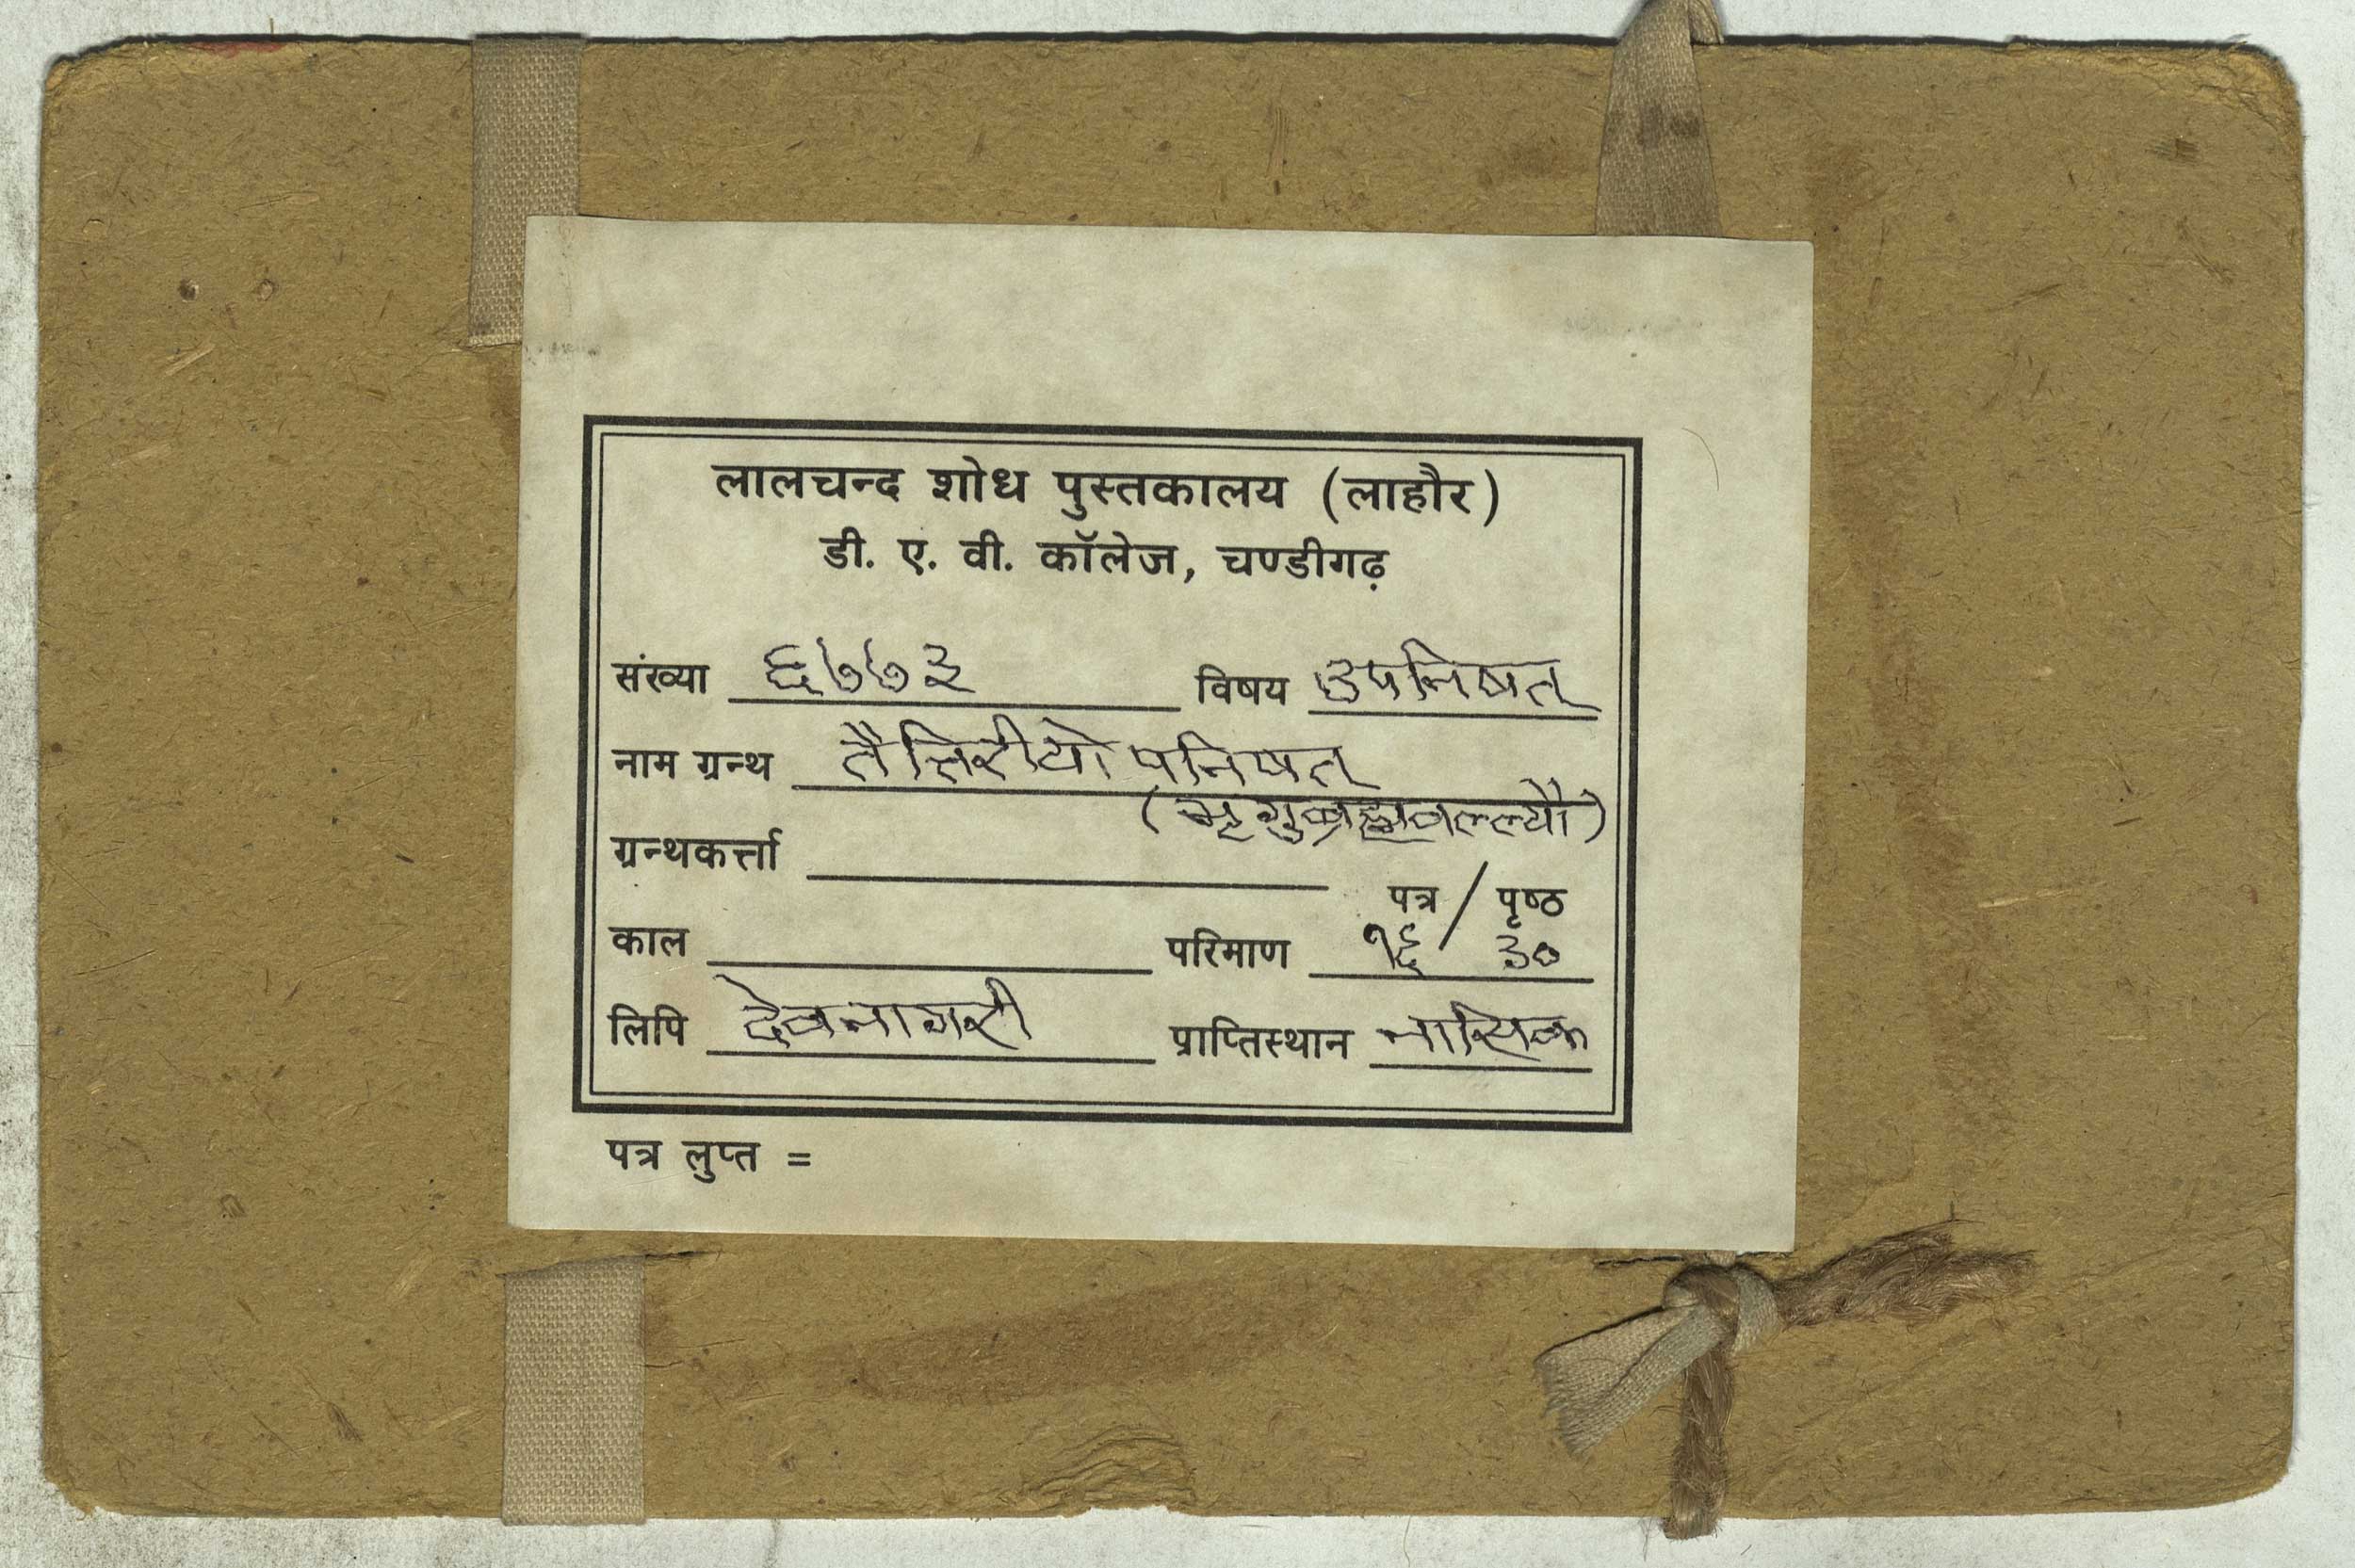 लालचन्द शोध पुस्तकालय (लाहौर)
डी. ए. वी. कॉलेज, चण्डीगढ़
संख्या ६७७३ विषय उपनिषत्
नाम ग्रन्थ तैत्तिरीयोपनिषत्
(भृगुब्रह्मवल्ल्यौ)
ग्रन्थकर्त्ता
पत्र / पृष्ठ
काल परिमाण १६ / ३०
लिपि देवनागरी प्राप्तिस्थान नासिक
पत्र लुप्त =